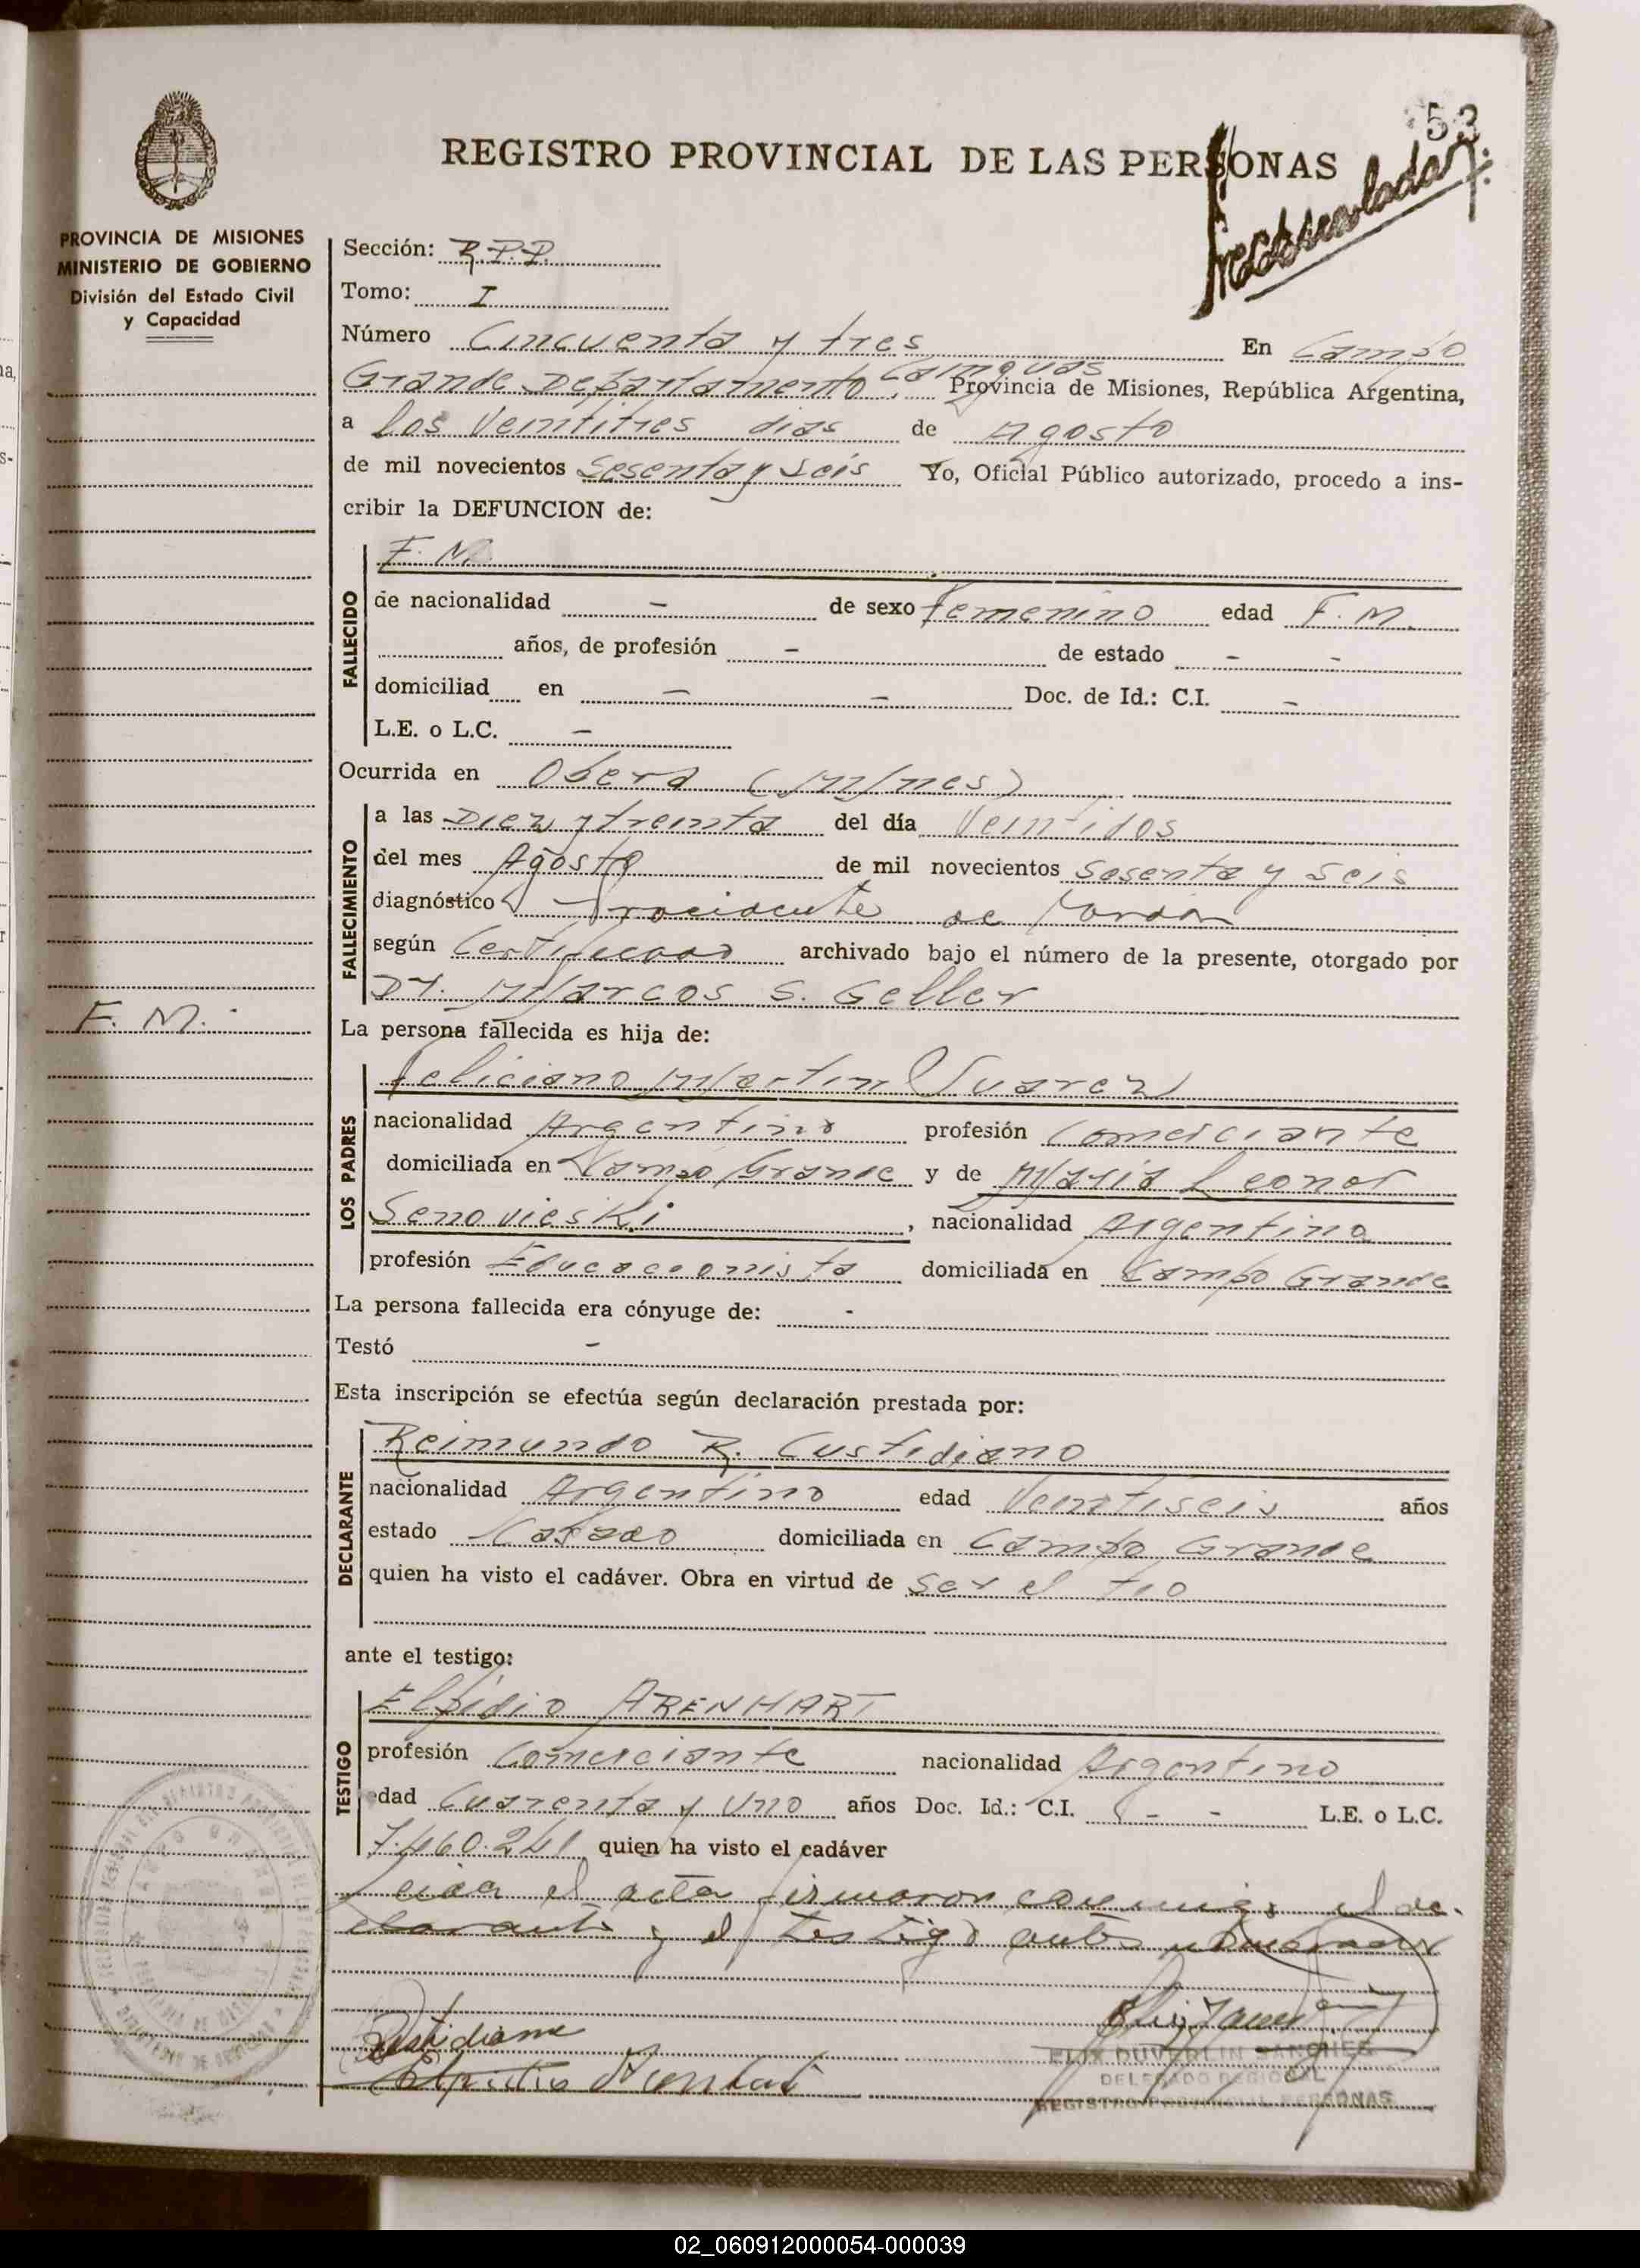 53
REGISTRO PROVINCIAL DE LAS PERSONAS
PROVINCIA DE MISIONES
MINISTERIO DE GOBIERNO
División del Estado Civil
y Capacidad
Sección: R.P.P.
Tomo: I
Número Cincuenta y tres En Campo
Grande Departamento Cainguas Provincia de Misiones, República Argentina,
a los Veintitres dias de Agosto
de mil novecientos Sesenta y Seis Yo, Oficial Público autorizado, procedo a ins-
cribir la DEFUNCION de:
FALLECIDO
F. M.
de nacionalidad - de sexo femenino edad F. M.
años, de profesión - de estado - -
domiciliad en - - Doc. de Id.: C.I. -
L.E. o L.C. -
Ocurrida en Obera (M/nes)
FALLECIMIENTO
a las Diez y treinta del día Veintidos
del mes Agosto de mil novecientos Sesenta y Seis
diagnóstico de
según Certificado archivado bajo el número de la presente, otorgado por
Dr. Marcos S. Geller
F. M.
La persona fallecida es hija de:
LOS PADRES
Feliciano Martin Suarez
nacionalidad Argentino profesión Comerciante
domiciliada en Campo Grande y de Maria Leonor
Senovieski, nacionalidad Argentina
profesión Educacionista domiciliada en Campo Grande
La persona fallecida era cónyuge de: -
Testó -
Esta inscripción se efectúa según declaración prestada por:
DECLARANTE
Reimundo R. Custidiano
nacionalidad Argentino edad Veintiseis años
estado Casado domiciliada en Campo Grande
quien ha visto el cadáver. Obra en virtud de Ser el tio
ante el testigo:
TESTIGO
Elpidio ARENHART
profesión Comerciante nacionalidad Argentino
edad Cuarenta y Uno años Doc. Id.: C.I. - - L.E. o L.C.
7.460.241 quien ha visto el cadáver
Leida el acta firmaron conmigo el de-
clarante y el testigo antes
Custidiano
ELIX DUVERLIN SANCHEZ
DELEGADO REGIONAL
REGISTRO PROVINCIAL PERSONAS
02_060912000054-000039